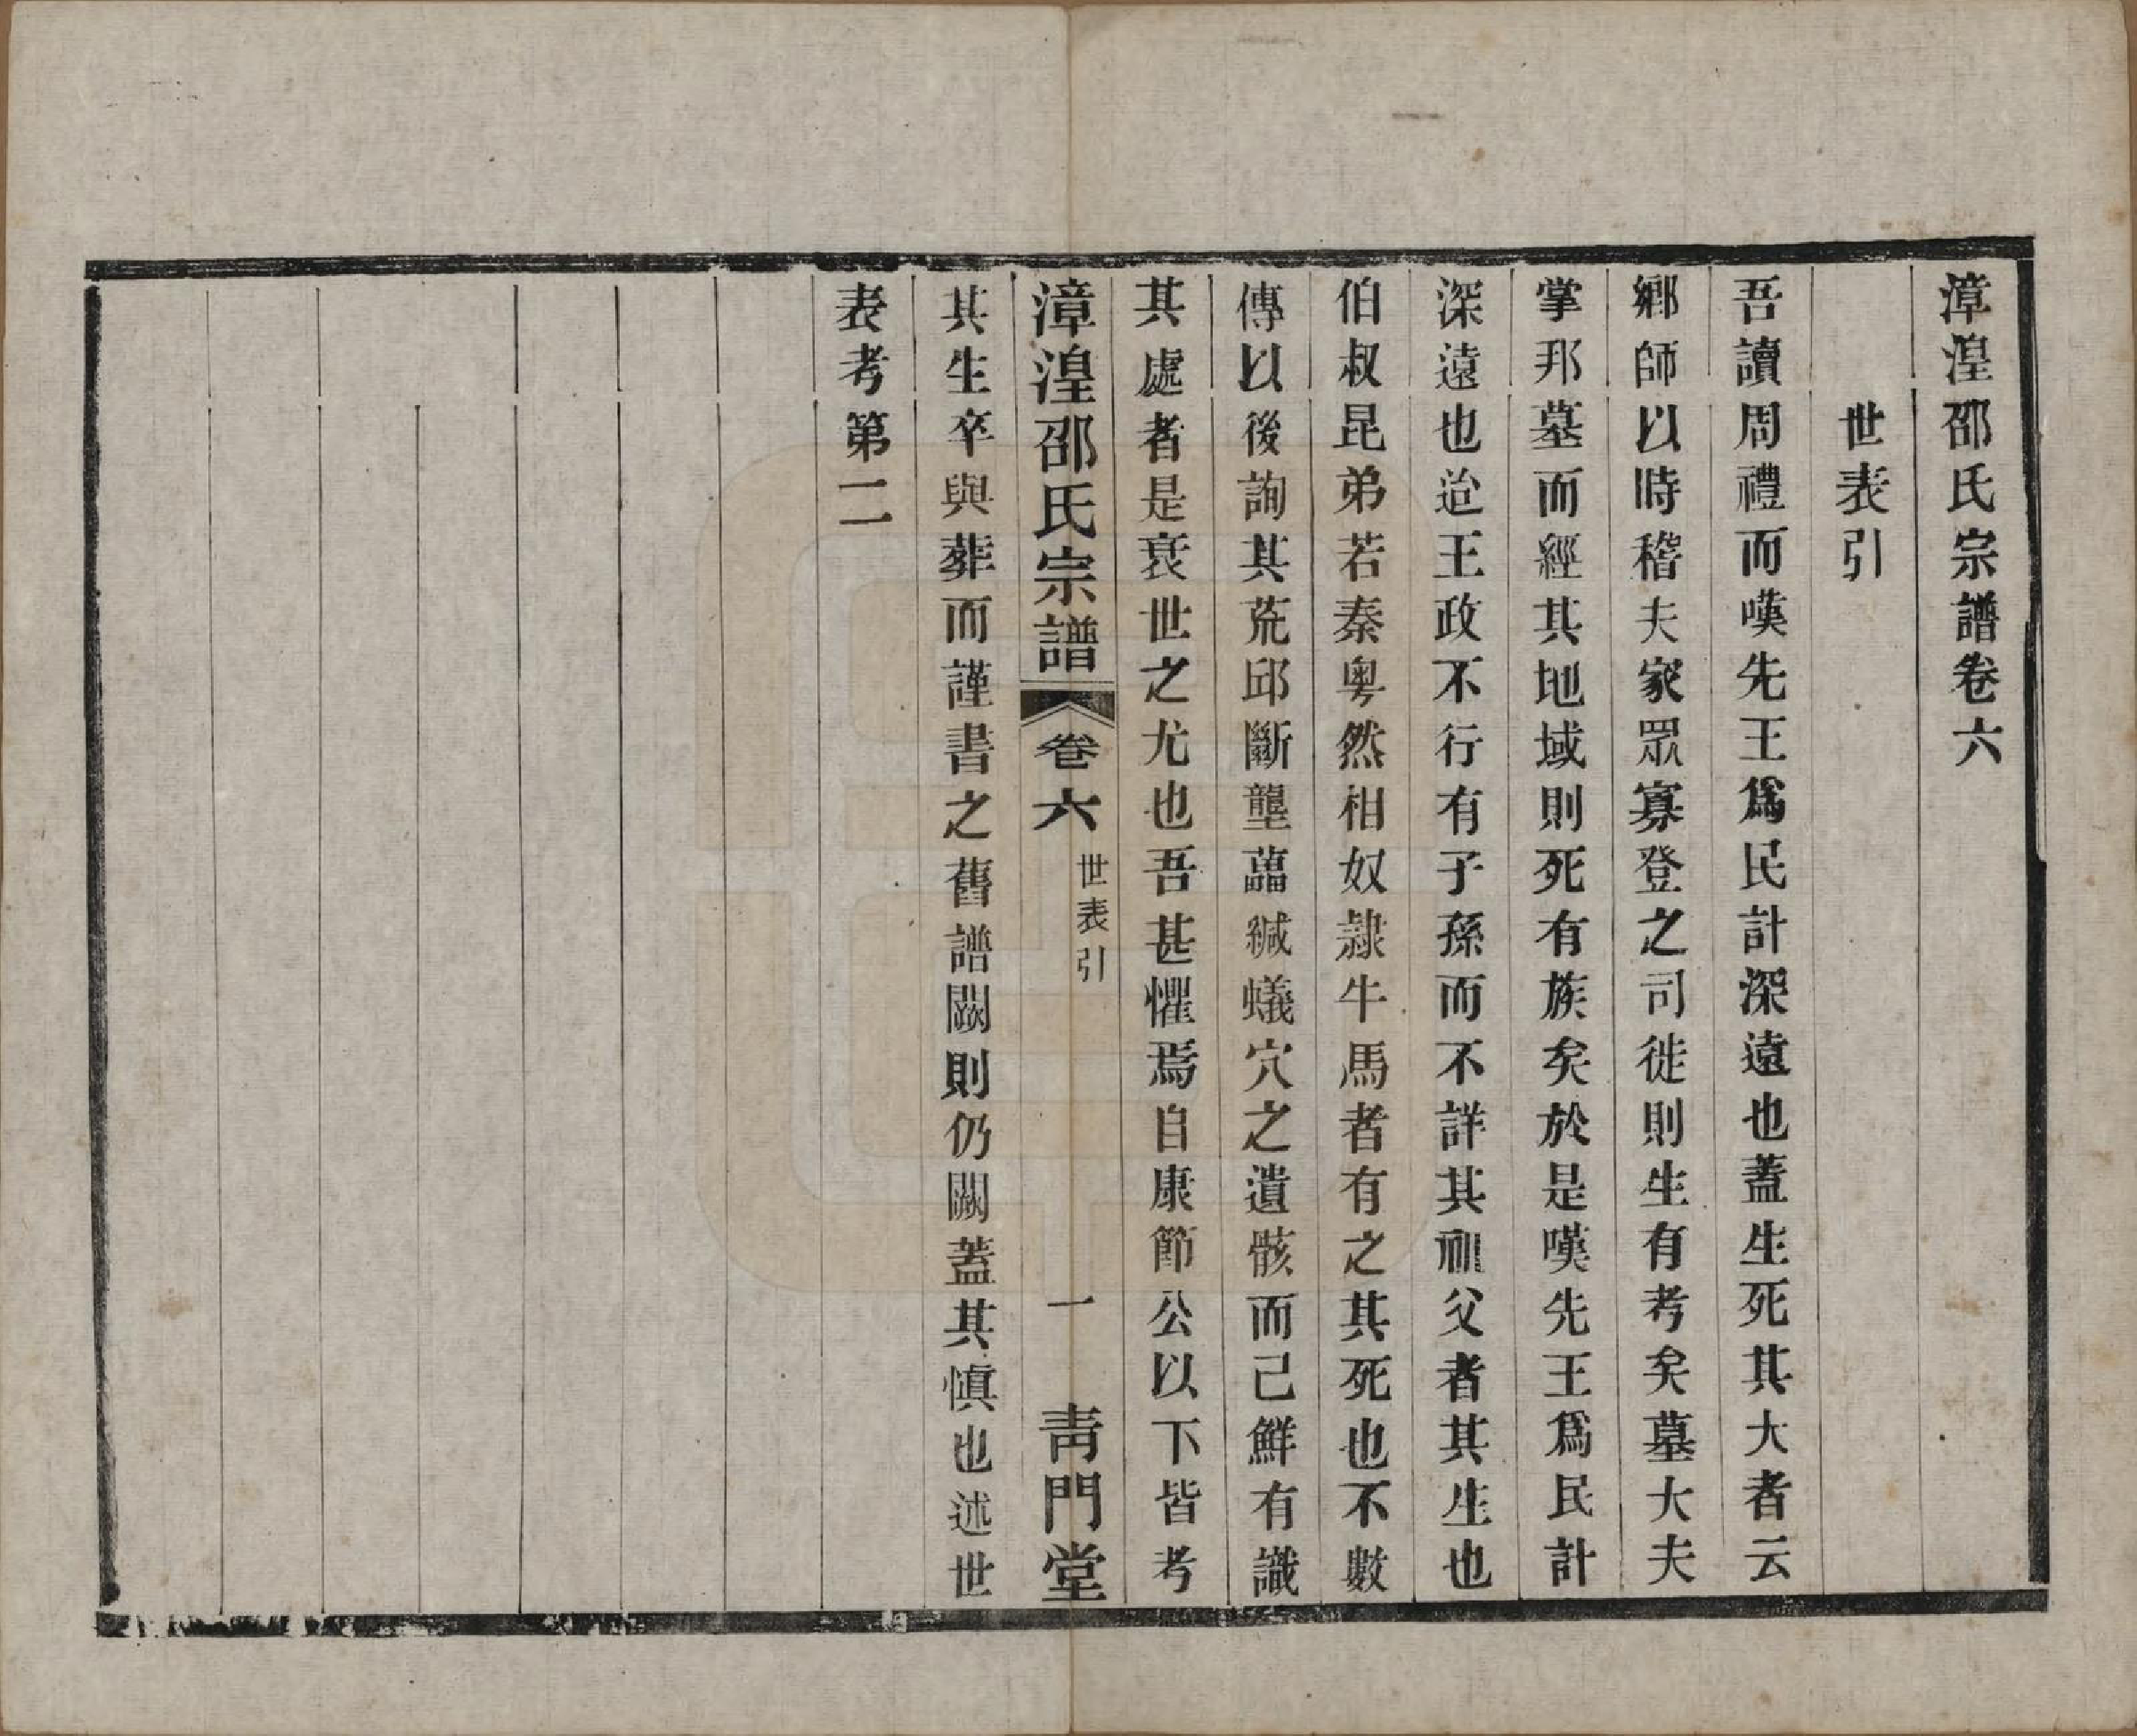 漳湟邵氏宗譜卷六
世表引
吾讀周禮而嘆先王爲民計深遠也蓋生死其大者云
鄉師以時稽夫家眾寡登之司徙則生有考矣墓大夫
掌邦墓而經其地域則死有族矣於是嘆先王爲民計
深遠也迨王政不行有子孫而不詳其祖父者其生也
伯叔昆弟若秦粤然相奴隷牛馬者有之其死也不數
傳以後詢其荒邱斷壟蔂緘蟻穴之遺骸而己鮮有識
其處者是衰世之尤也吾甚懼焉自康節公以下皆考
漳湟邵氏宗譜 卷六 世表引 一 靑門堂
其生卒與葬而謹書之舊譜闕則仍闕蓋其愼也述世
表考第二